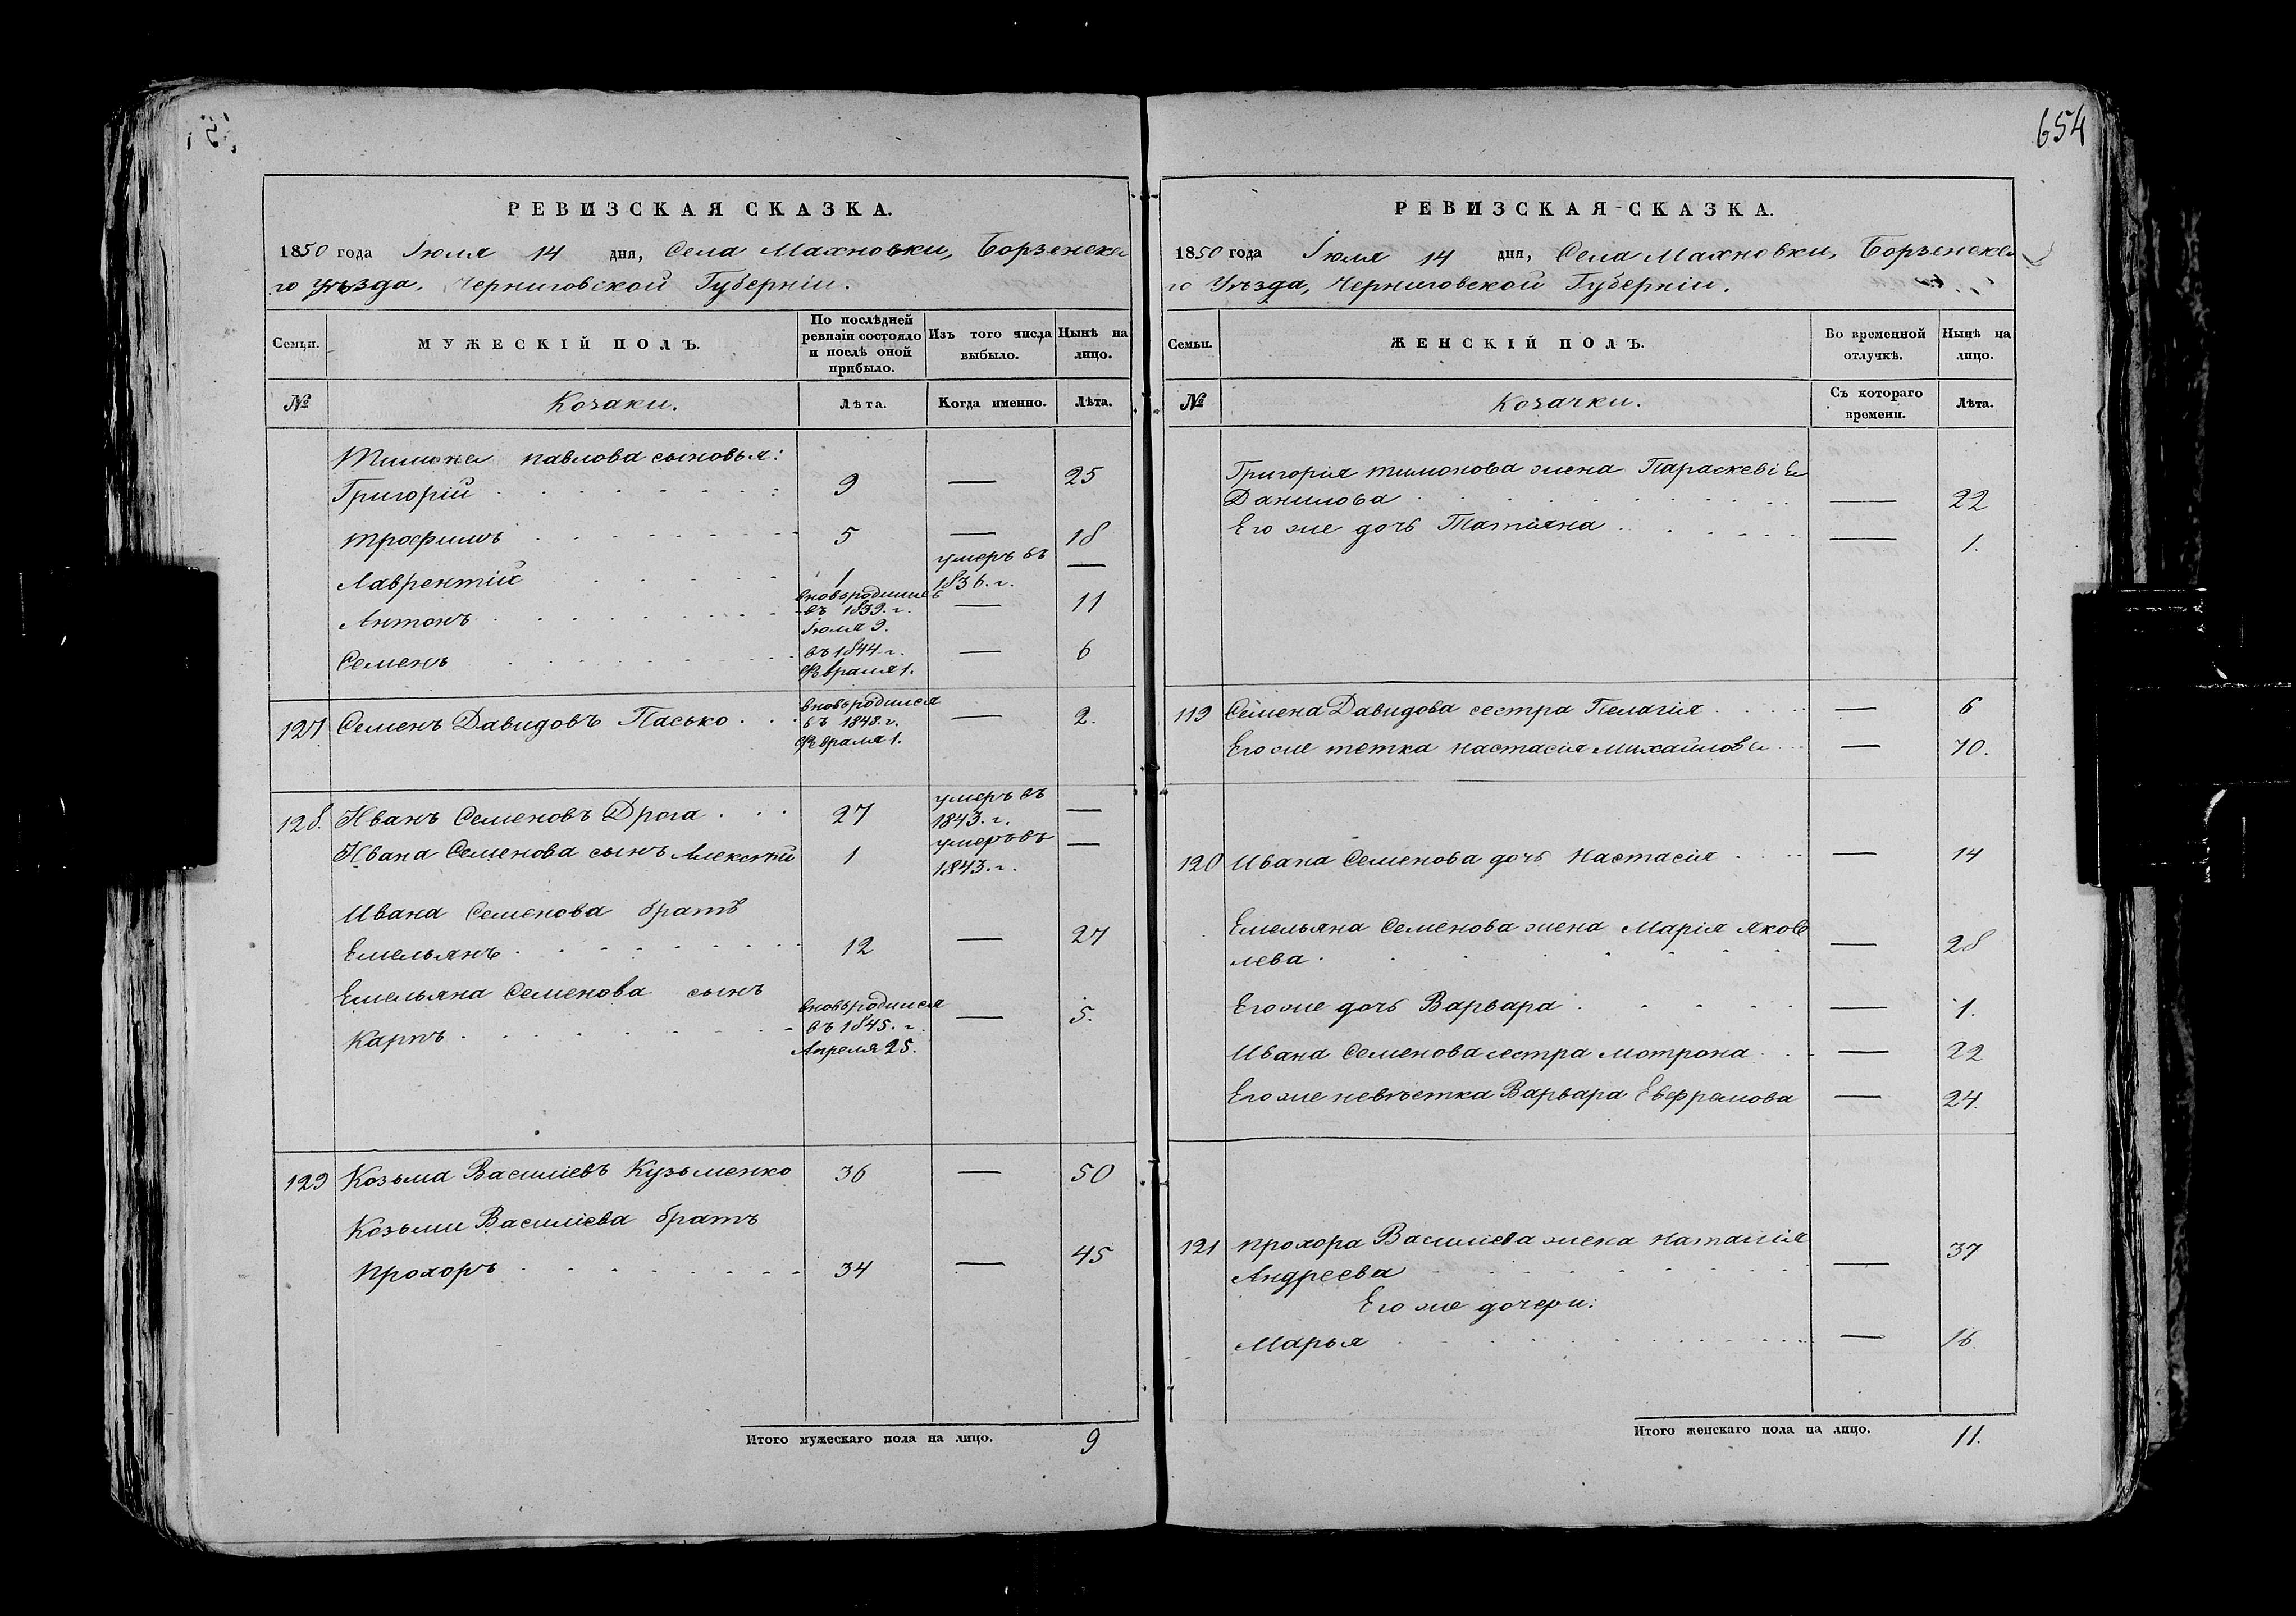 654
РЕВИЗСКАЯ СКАЗКА.
1850 года Іюля 14 дня, Села Махновки, Борзенска
го уѣзда, Черниговской Губерніи.
Семьи.
МУЖЕСКІЙ ПОЛЪ.
По послѣдней ревизіи состояло и послѣ оной прибыло.
Изъ того числа выбыло.
Нынѣ на лицо.
№
Козаки.
Лѣта.
Когда именно.
Лѣта.
Тимона павлова сыновья:
Григорій 9 — 25
Трофимъ 5 — 18
Лаврентій 1 умеръ въ 1836. г. —
Антонъ вновьродился въ 1839. г. Іюля 9. — 11
Семенъ въ 1844 г. Февраля 1. — 6
127 Семенъ Давидовъ Пасько вновьродился въ 1848. г. Февраля 1. — 2.
128. Иванъ Семеновъ Дрога 27 умеръ въ 1843. г. —
Ивана Семенова сынъ Алексѣй 1 умеръ въ 1843. г. —
Ивана Семенова братъ
Емельянъ 12 — 27
Емельяна Семенова сынъ
Карпъ вновьродился въ 1845. г. Апреля 25. — 5.
129 Козьма Василіевъ Кузьменко 36 — 50
Козьми Василіева братъ
Прохоръ 34 — 45
Итого мужескаго пола на лицо. 9
РЕВИЗСКАЯ СКАЗКА.
1850 года Іюля 14 дня, Села Махновки, Борзенска
го Уѣзда, Черниговской Губерніи.
Семьи.
ЖЕНСКІЙ ПОЛЪ.
Во временной отлучкѣ.
Нынѣ на лицо.
№
Козачки.
Съ котораго времени.
Лѣта.
Григорія тимонова жена Параскевія
Данилова — 22
Его же дочь Татіяна — 1.
119 Семена Давидова сестра Пелагія — 6
Его же тетка настасія михайлова — 70.
120 Ивана Семенова дочь Настасія — 14
Емельяна Семенова жена Марія Яков
лева — 28
Его же дочь Варвара — 1.
Ивана Семенова сестра мотрона — 22
Его же невѣстка Варвара Евфремова — 24.
121 прохора Василіева жена наталія
Андреева — 37
Его же дочери:
Марья — 16.
Итого женскаго пола на лицо. 11.